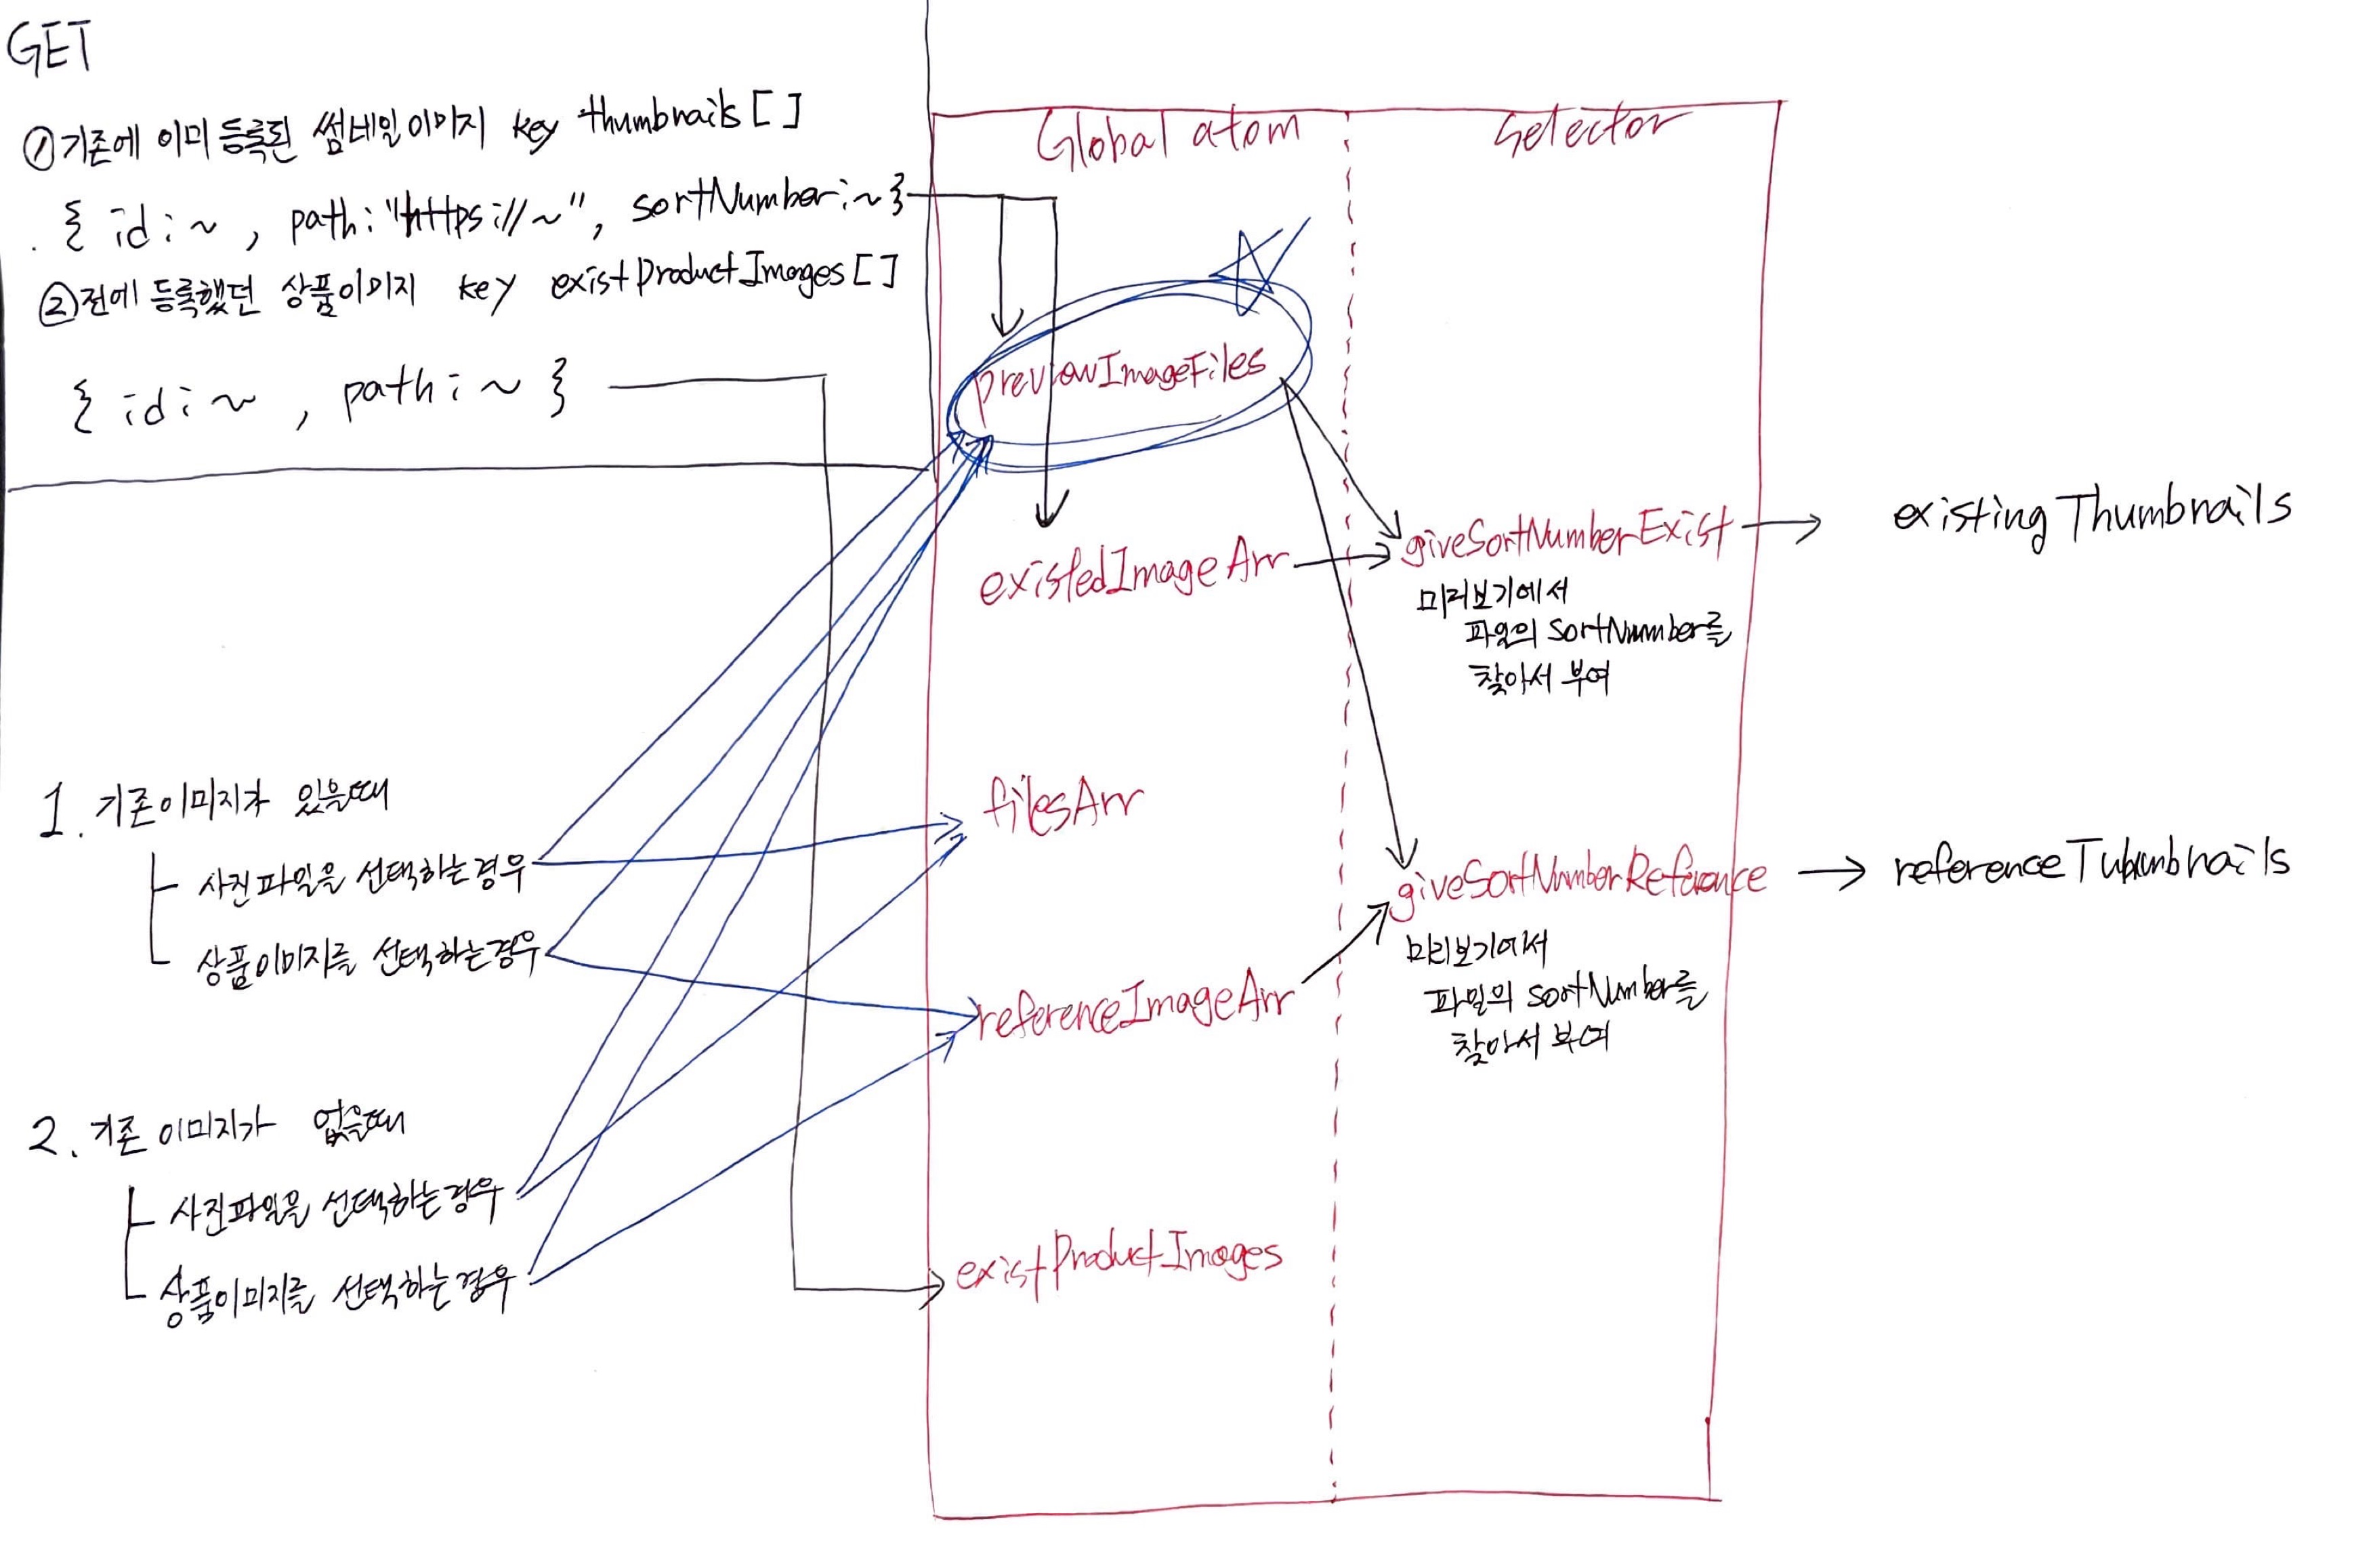 GET
①기존에 이미 등록된 썸네일이미지 key thumbnails[]
{ id:~ , path:"https://~", sortNumber:~}
②전에 등록했던 상품이미지 key existProductImages[]
{ id:~ , path:~ }
1. 기존이미지가 있을때
사진파일을 선택하는경우
상품이미지를 선택하는경우
2. 기존 이미지가 없을때
사진파일을 선택하는경우
상품이미지를 선택하는경우
Global atom
previewImageFiles
existedImageArr
filesArr
referenceImageArr
existProductImages
Selector
giveSortNumberExist
미리보기에서
파일의 sortNumber를
찾아서 부여
giveSortNumberReference
미리보기에서
파일의 sortNumber를
찾아서 부여
existingThumbnails